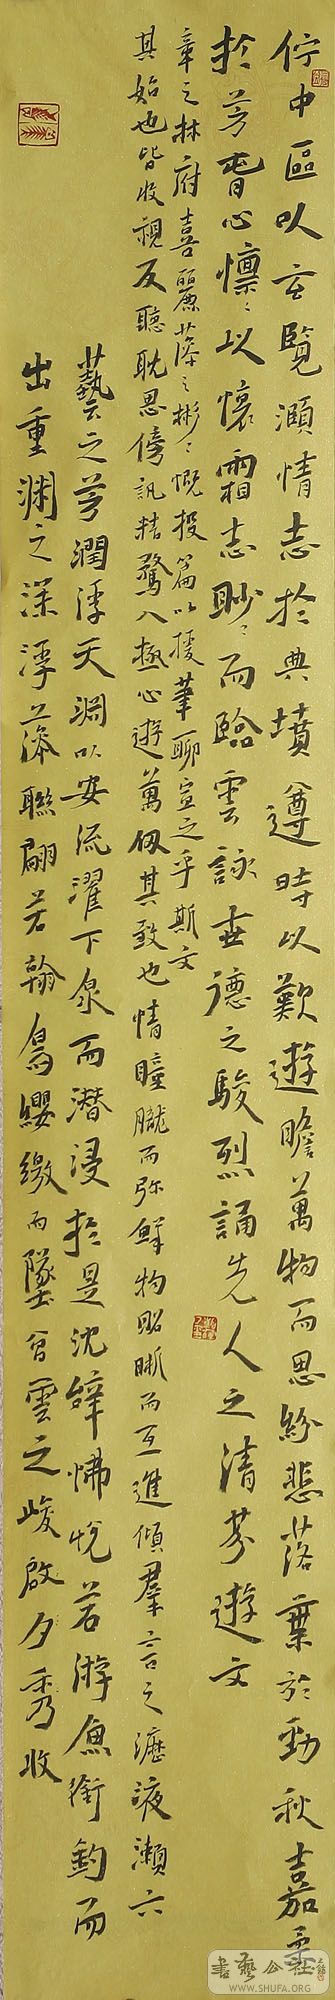 佇中區以玄覽頤情志於典墳遵時以歎逝瞻萬物而思紛悲落葉於勁秋嘉柔
於芳春心懍〻以懷霜志眇〻而臨雲詠世德之駿烈誦先人之清芬遊文
章之林府喜麗藻之彬〻慨投篇以援筆聊宣之乎斯文
其始也皆收視反聽耽思傍訊精騖八極心遊萬仞其致也情曈曨而弥鮮物昭晰而互進傾羣言之瀝液漱六
藝之芳潤浮天淵以安流濯下泉而潜浸於是沈辭怫悅若游魚銜鉤而
出重渊之深浮藻聯翩若翰鳥纓繳而墜曾雲之峻啟夕秀收
書藝公社
WWW.SHUFA.ORG